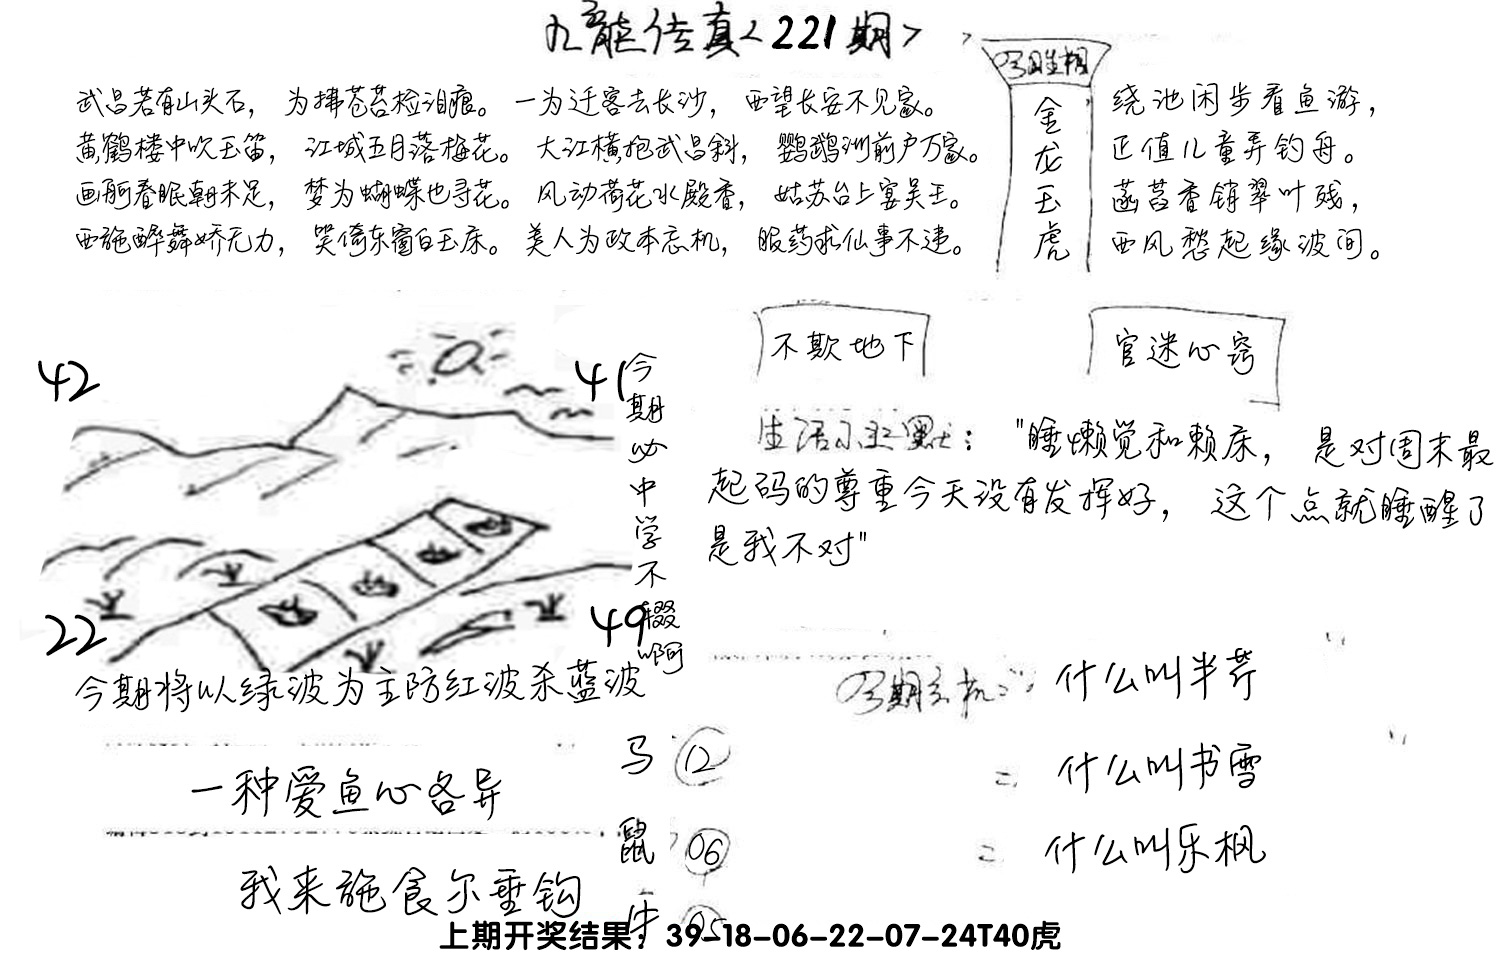 九龙传真<221期>
今期生相
金龙玉虎
武昌若有山头石，为拂苍苔检泪痕。一为迁客去长沙，西望长安不见家。
黄鹤楼中吹玉笛，江城五月落梅花。大江横抱武昌斜，鹦鹉洲前户万家。
画舸春眠朝未足，梦为蝴蝶也寻花。风动荷花水殿香，姑苏台上宴吴王。
西施醉舞娇无力，笑倚东窗白玉床。美人为政本忘机，服药求仙事不违。
绕池闲步看鱼游，
正值儿童弄钓舟。
菡萏香销翠叶残，
西风愁起缘波间。
42
41
22
49
今期必中学不辍啊
不欺地下
官迷心窍
生活小幽默："睡懒觉和赖床，是对周末最
起码的尊重今天没有发挥好，这个点就睡醒了
是我不对"
今期将以绿波为主防红波杀蓝波
今期玄机：什么叫半芹
=什么叫书雪
=什么叫乐枫
一种爱鱼心各异
我来施食尔垂钩
马 12
鼠 06
牛 05
上期开奖结果：39-18-06-22-07-24T40虎